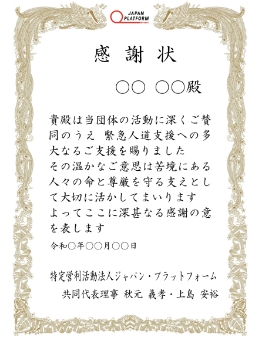 JAPAN
PLATFORM
感謝状
○○ ○○殿
貴殿は当団体の活動に深くご賛
同のうえ 緊急人道支援への多
大なるご支援を賜りました
その温かなご意思は苦境にある
人々の命と尊厳を守る支えとし
て大切に活かしてまいります
よってここに深甚なる感謝の意
を表します
令和○年○○月○○日
特定営利活動法人ジャパン・プラットフォーム
共同代表理事 秋元 義孝・上島 安裕